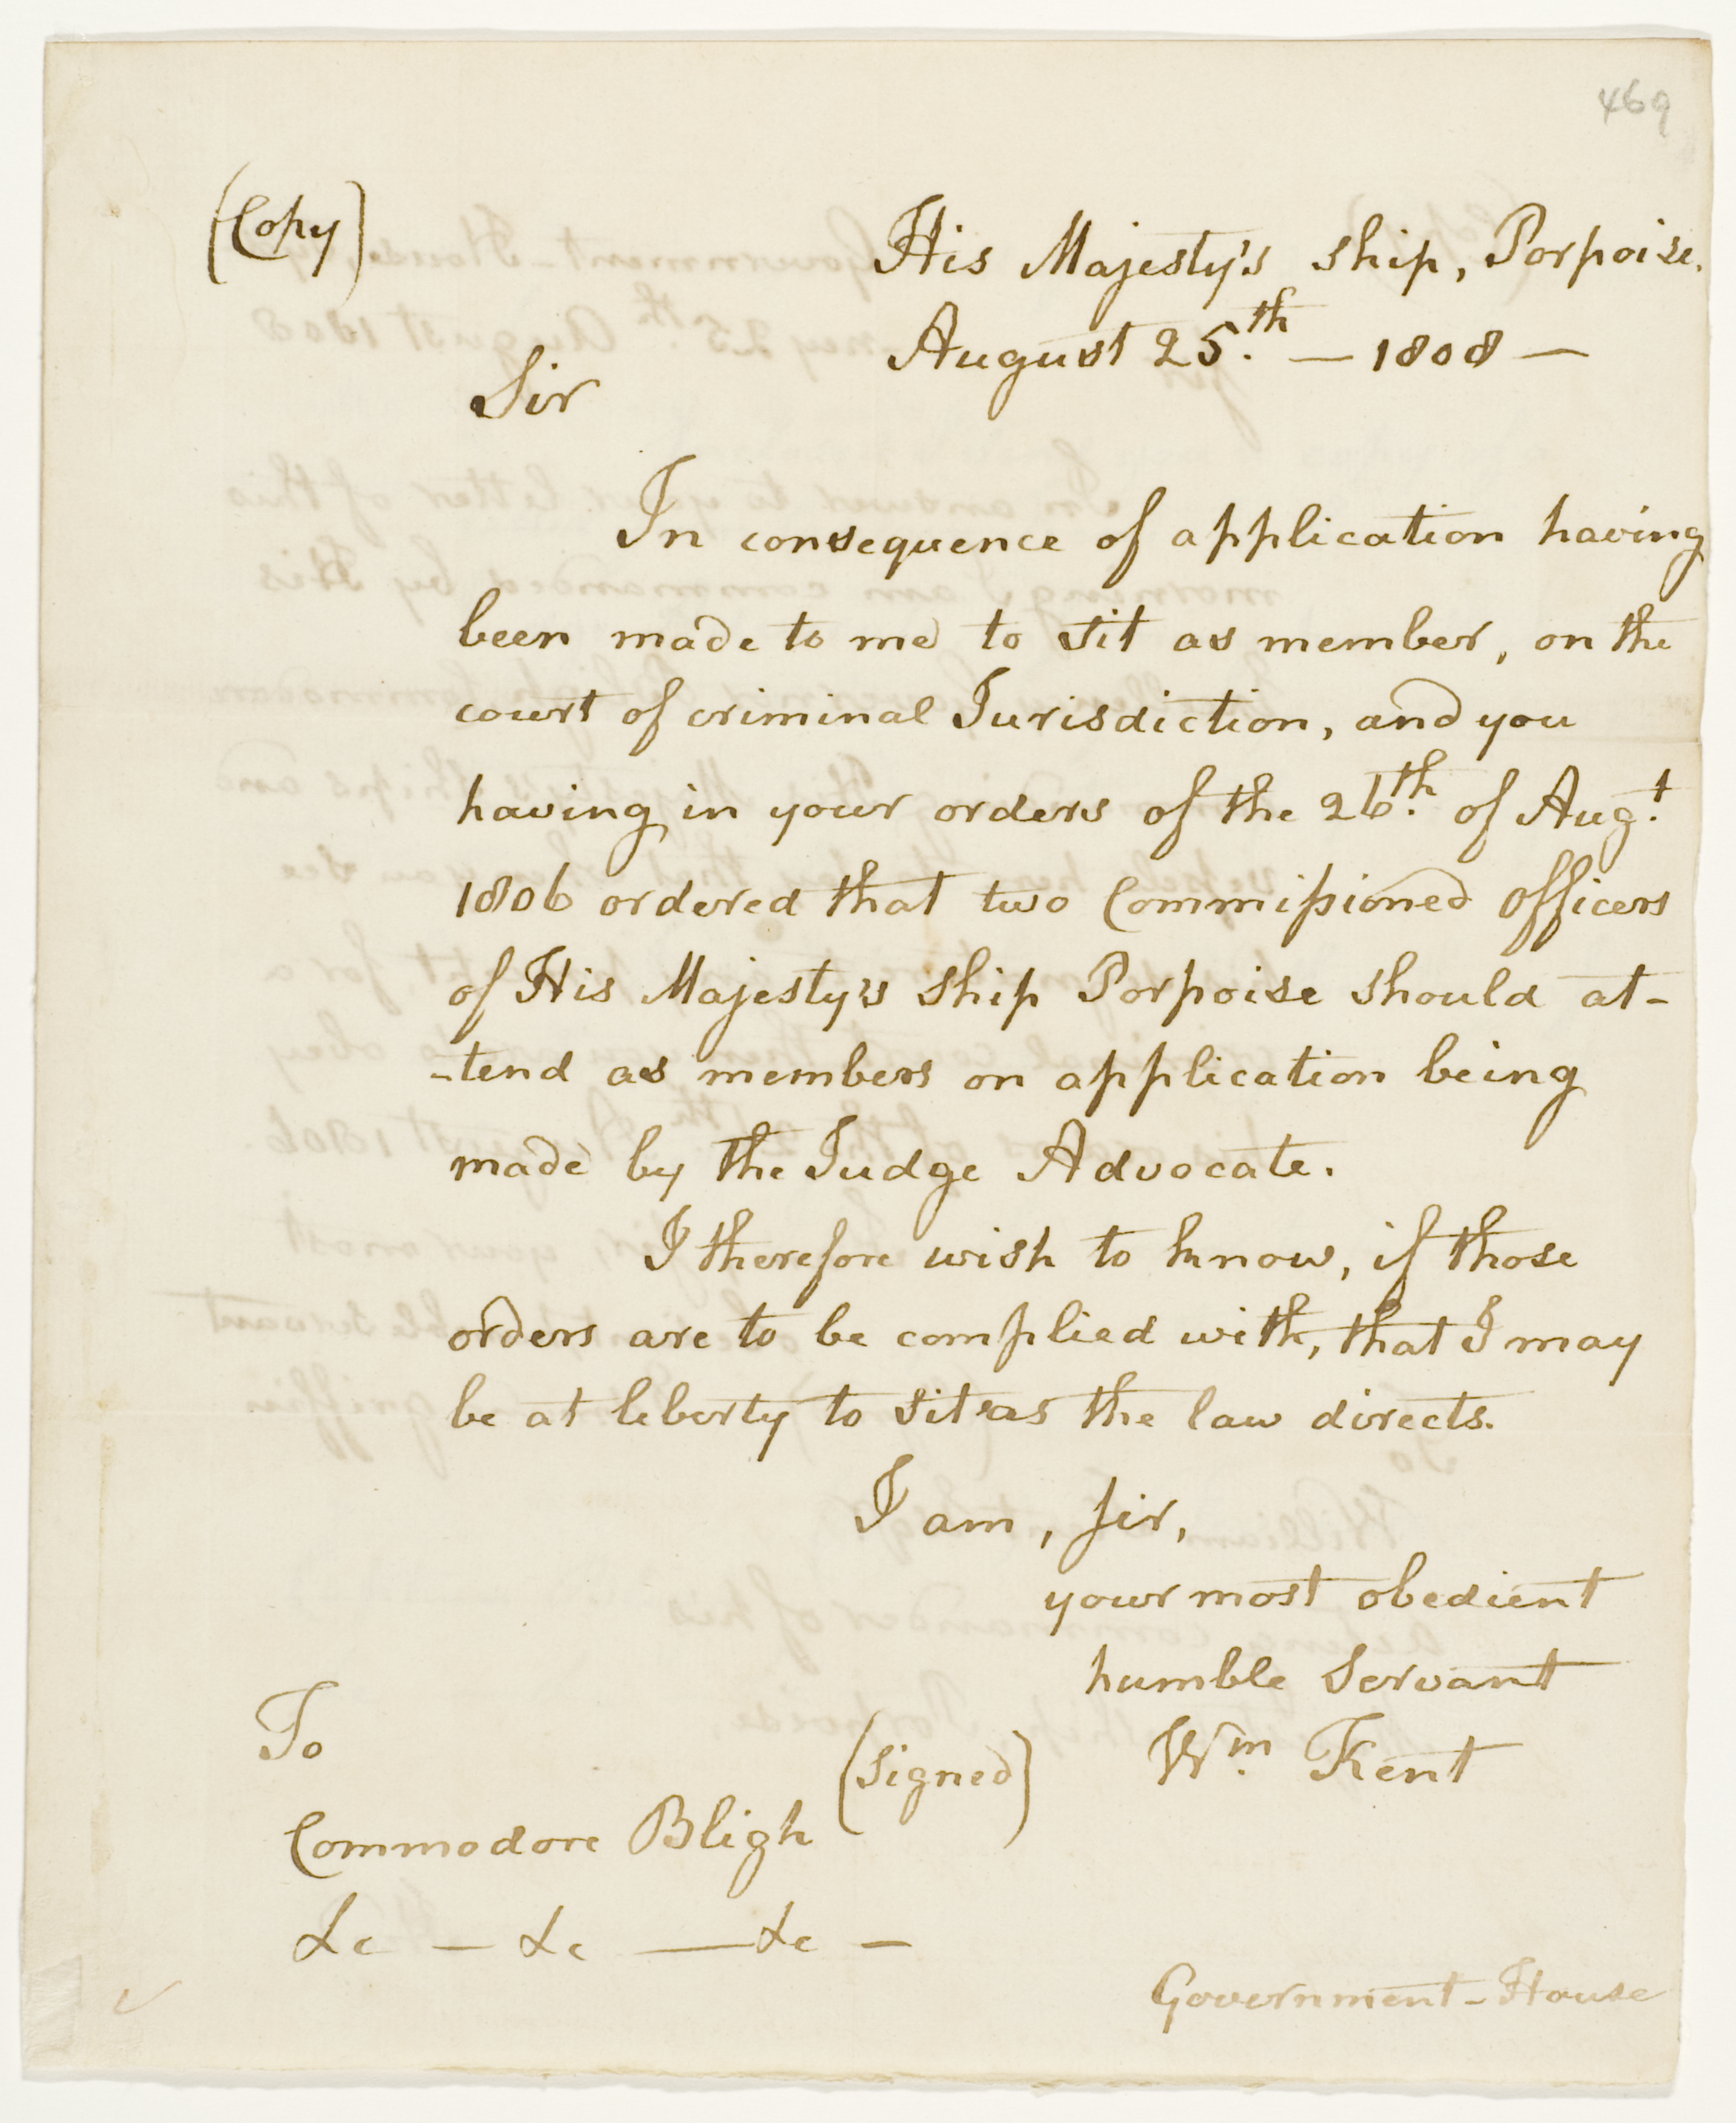 469
(Copy)
His Majesty's ship, Porpoise.
August 25.th — 1808 —
Sir
In consequence of application having
been made to me to sit as member, on the
court of criminal Jurisdiction, and you
having in your orders of the 26.th of Aug.t
1806 ordered that two Commissioned officers
of His Majesty's ship Porpoise should at-
-tend as members on application being
made by the Judge Advocate.
I therefore wish to know, if those
orders are to be complied with, that I may
be at liberty to sit as the law directs.
I am, Sir,
your most obedient
humble Servant
(signed) Wm. Kent
To
Commodore Bligh
&c — &c — &c —
Government-House